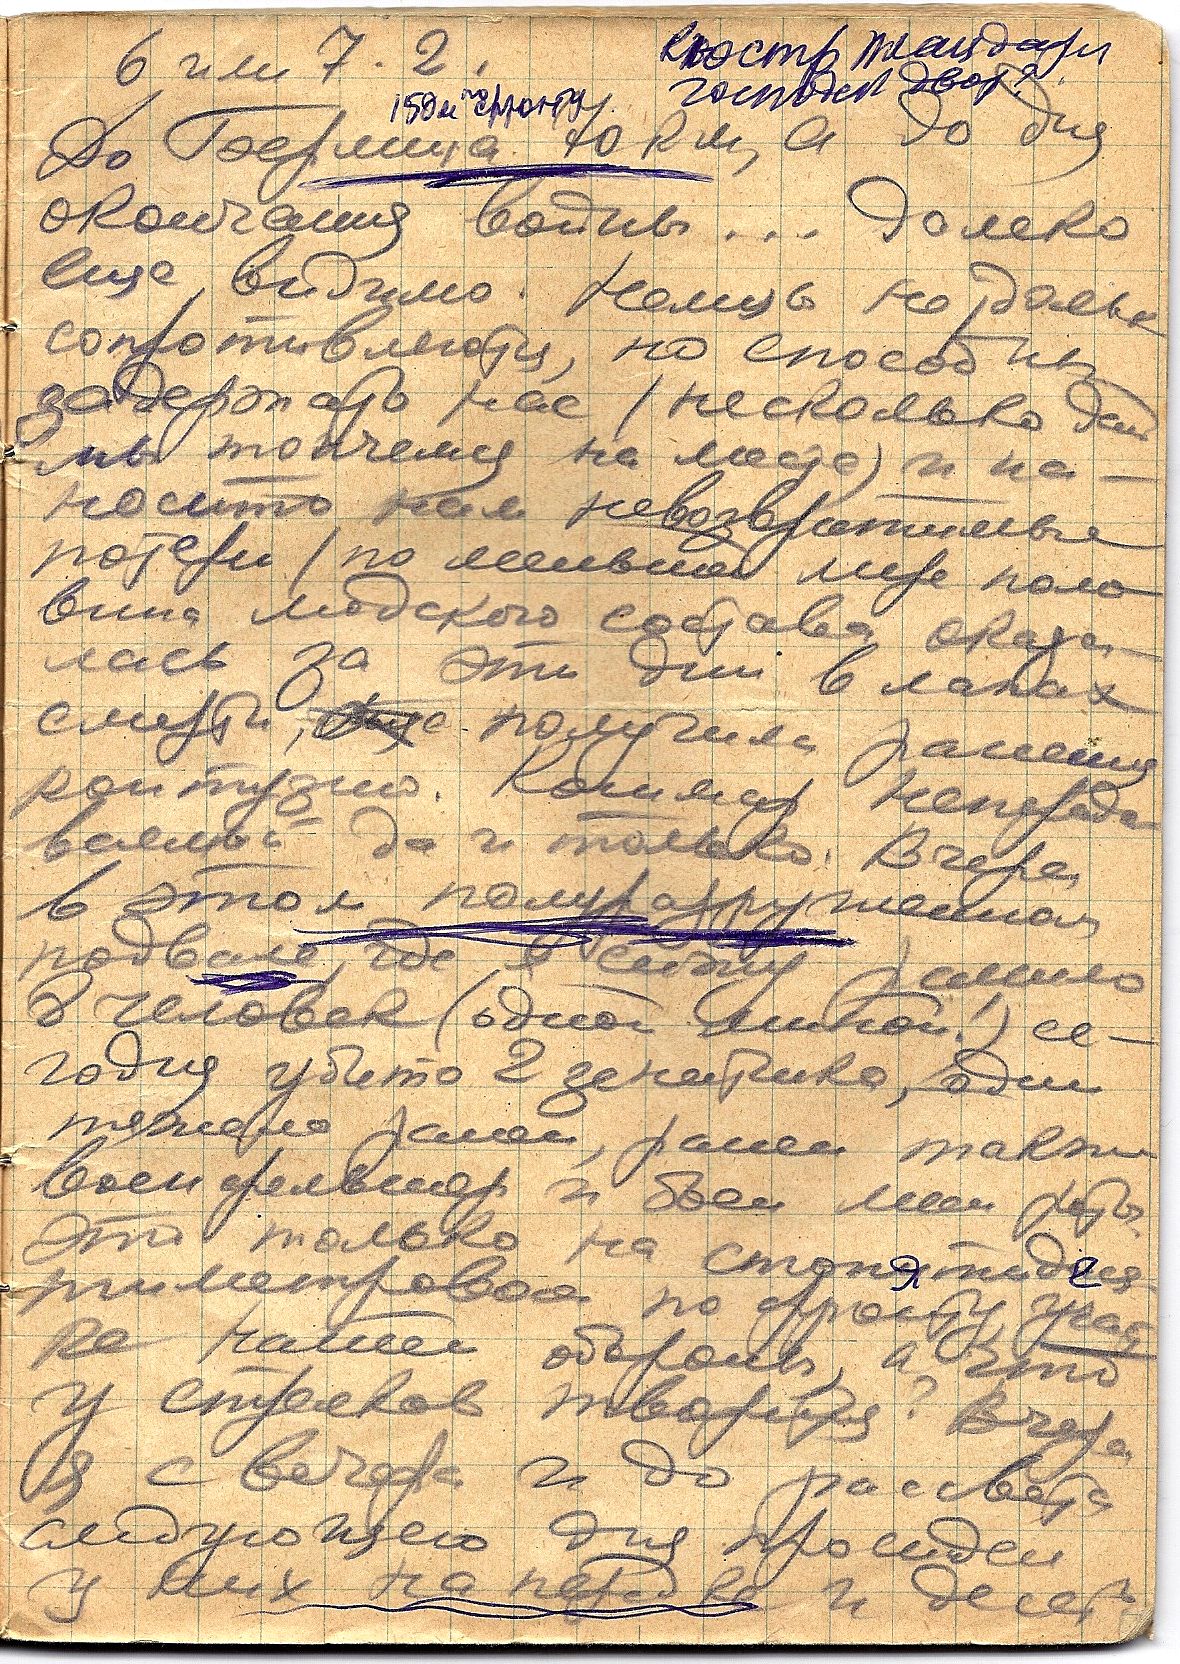 6 или 7. 2.
господск двор?
150 м по фронту
До Берлина 70 км, а до дня
окончания войны... далеко
еще, видимо. Немцы не только
сопротивляются, но способны
задержать нас (несколько дней
мы топчемся на месте) и на-
носить нам невозвратимые
потери (по меньшей мере поло-
вина людского состава оказа-
лась за эти дни в лапах
смерти, получила ранения
контузию. Кошмар непереда-
ваемый да и только. Вчера
в этом полуразрушенном
подвале, где я сижу ранило
8 человек (одной миной!) се-
годня убито 2 зенитчика, один
тяжело ранен, ранен также
военфельдшер и боец моей роты.
Это только на стопятидеся-
тиметровом по фронту участ
ке нашей обороны, а что
у стрелков творится? Вчера
я с вечера и до рассвета
следующего дня просидел
у них на передке и десять